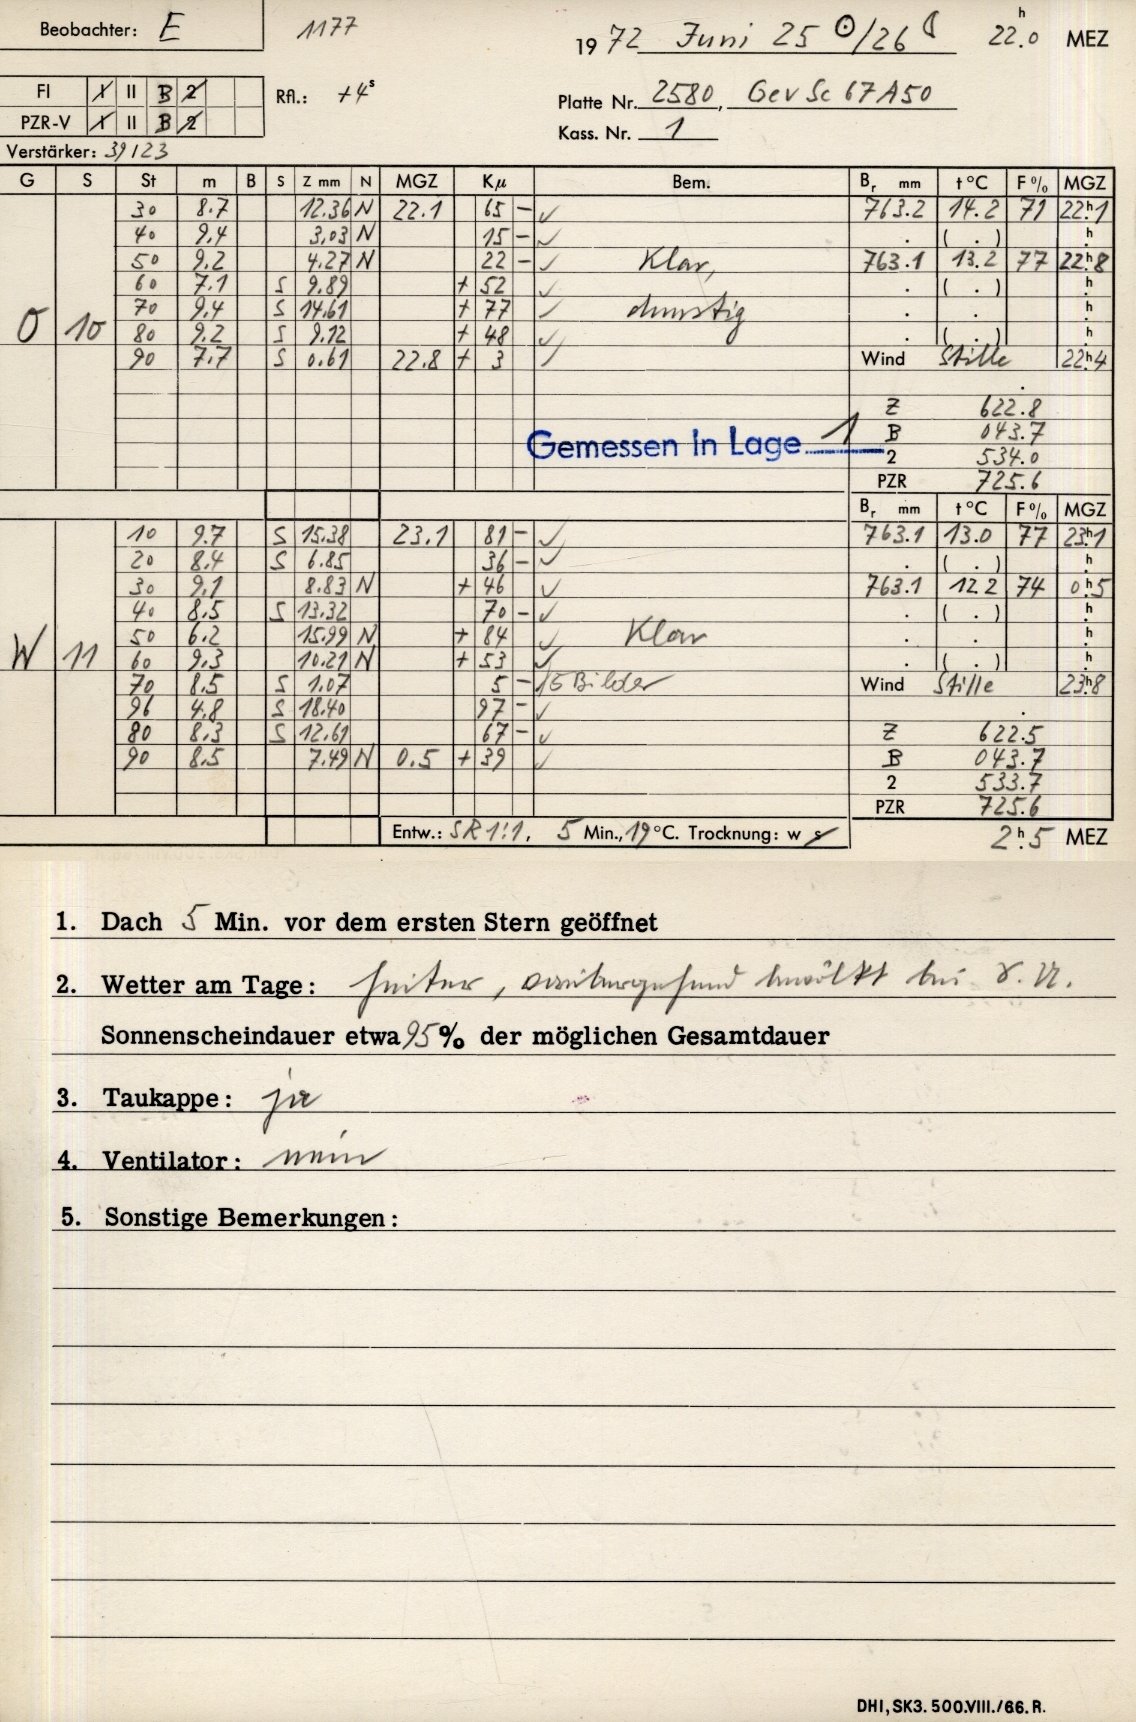 Beobachter: E 1177 1972 Juni 25 ☉/26 ☾ 22.0h MEZ
FI 1 II B 2 Rfl.: +4s Platte Nr. 2580, Gev Sc 67A50
PZR-V 1 II B 2 Kass. Nr. 1
Verstärker: 39123
G S St m B S Z mm N MGZ Kμ Bem. Br mm t°C F% MGZ
30 8.7 12.36 N 22.1 65 - ✓ 763.2 14.2 71 22h1
40 9.4 3.03 N 15 - ✓ . ( . ) h
50 9.2 4.27 N 22 - ✓ Klar, 763.1 13.2 77 22h8
60 7.1 S 9.89 + 52 ✓ . ( . ) h
O 10 70 9.4 S 14.61 + 77 ✓ dunstig . . h
80 9.2 S 9.12 + 48 ✓ . ( . ) h
90 7.7 S 0.61 22.8 + 3 ✓ Wind Stille 22h4
Z 622.8
Gemessen in Lage 1 B 043.7
2 534.0
PZR 725.6
Br mm t°C F% MGZ
10 9.7 S 15.38 23.1 81 - ✓ 763.1 13.0 77 23h1
20 8.4 S 6.85 36 - ✓ . ( . ) h
30 9.1 8.83 N + 46 ✓ 763.1 12.2 74 0h5
40 8.5 S 13.32 70 - ✓ . ( . ) h
50 6.2 15.99 N + 84 ✓ Klar . . h
W 11 60 9.3 10.21 N + 53 ✓ . ( . ) h
70 8.5 S 1.07 5 - 15 Bilder Wind Stille 23h8
96 4.8 S 18.40 97 - ✓
80 8.3 S 12.61 67 - ✓ Z 622.5
90 8.5 7.49 N 0.5 + 39 ✓ B 043.7
2 533.7
PZR 725.6
Entw.: SR 1:1, 5 Min., 19°C. Trocknung: w s 2h.5 MEZ
1. Dach 5 Min. vor dem ersten Stern geöffnet
2. Wetter am Tage: heiter, vorübergehend bewölkt bei S.U.
Sonnenscheindauer etwa 95% der möglichen Gesamtdauer
3. Taukappe: ja
4. Ventilator: nein
5. Sonstige Bemerkungen:
DHI, SK3. 500.VIII./66. R.